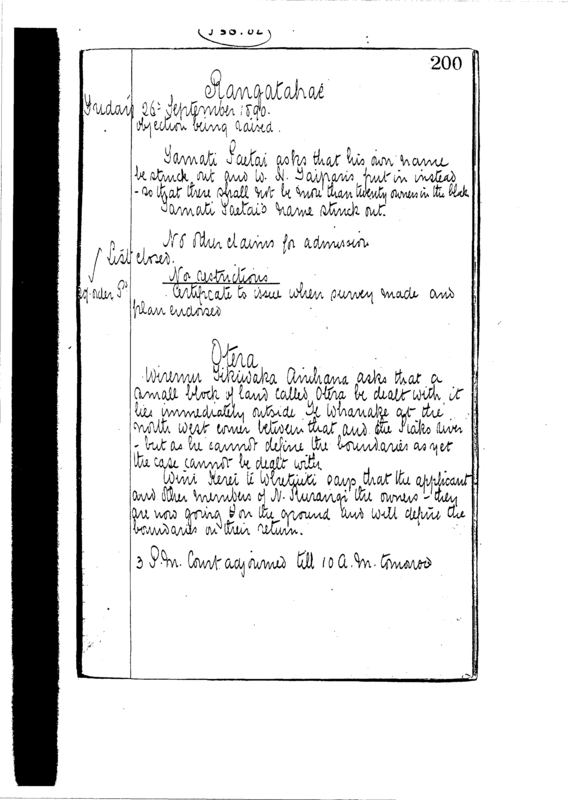 200
Rangatahae
Friday 26th September 1890.
objection being raised.
Tamati Paetai asks that his own name
be struck out and W. H. Taipari's put in instead
- so that there shall not be more than twenty owners in the block
Tamati Paetai's name struck out.
No other claims for admission
List closed.
No restrictions
Certificate to issue when survey made and
plan endorsed
Otera
Wiremu asks that a
small block of land called Otera be dealt with, it
lies immediately outside Te Whanake at the
north west corner between that and the river
- but as he cannot define the boundaries as yet
the case cannot be dealt with
says that the applicant
and other members of N. the owners - they
are now going on the ground and will define the
boundaries on their return.
3 P.M. Court adjourned till 10 A.M. tomorow